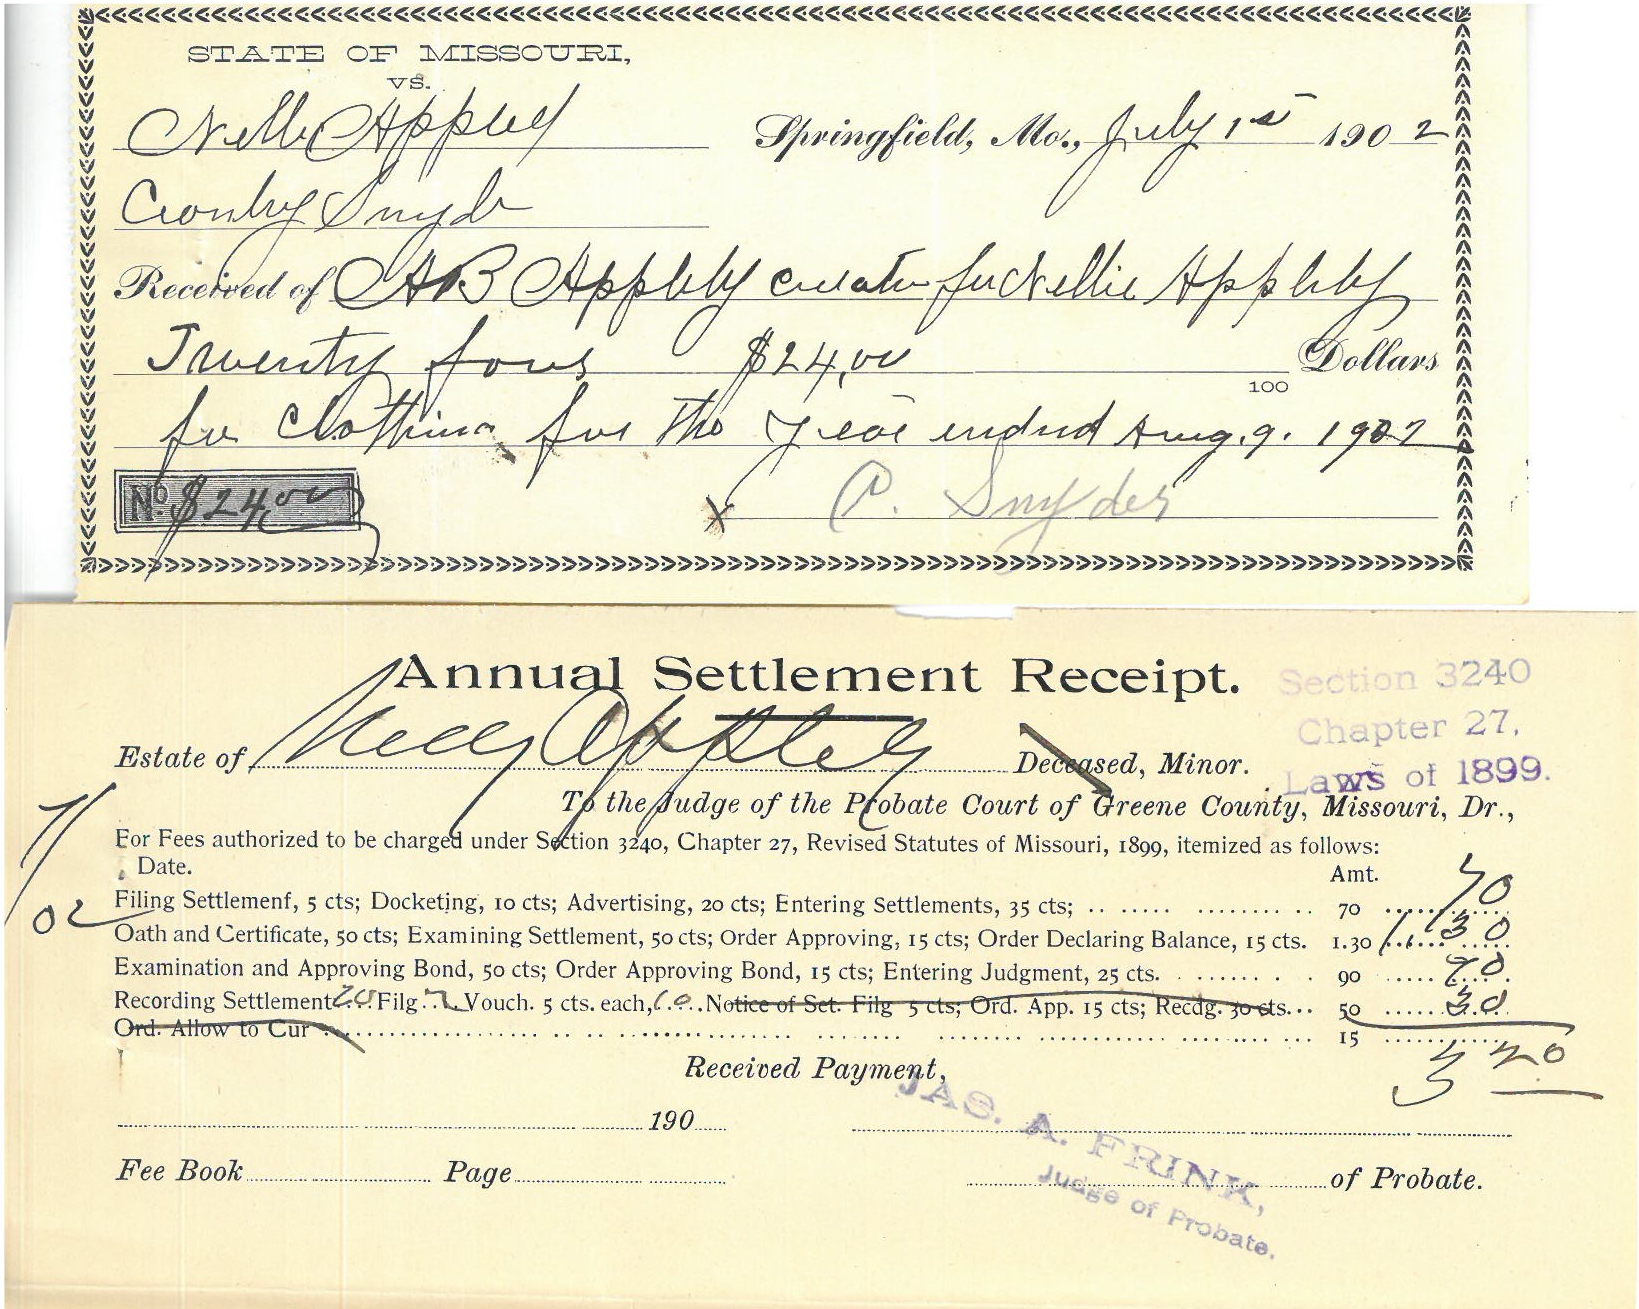 STATE OF MISSOURI,
vs.
Nellie Appleby
Springfield, Mo., July 1st 1902
Crosby Snyder
Received of A B Appleby curator for Nellie Appleby
Twenty four $24,00 Dollars
100
for Clothing for the year ended Aug. 9. 1902
No. $24,00
x C. Snyder
Annual Settlement Receipt.
Section 3240
Chapter 27,
Laws of 1899.
Estate of Nelly Appleby Deceased, Minor.
To the Judge of the Probate Court of Greene County, Missouri, Dr.,
For Fees authorized to be charged under Section 3240, Chapter 27, Revised Statutes of Missouri, 1899, itemized as follows:
Date. Amt.
7/ 02
Filing Settlement, 5 cts; Docketing, 10 cts; Advertising, 20 cts; Entering Settlements, 35 cts; 70 70
Oath and Certificate, 50 cts; Examining Settlement, 50 cts; Order Approving, 15 cts; Order Declaring Balance, 15 cts. 1.30 1.30
Examination and Approving Bond, 50 cts; Order Approving Bond, 15 cts; Entering Judgment, 25 cts. 90 90
Recording Settlement 20 Filg 2 Vouch. 5 cts. each, 10 Notice of Set. Filg 5 cts; Ord. App. 15 cts; Recdg. 30 cts... 50 30
Ord. Allow to Cur 15
3 20
Received Payment,
190
JAS. A. FRINK,
Judge of Probate.
Fee Book Page of Probate.